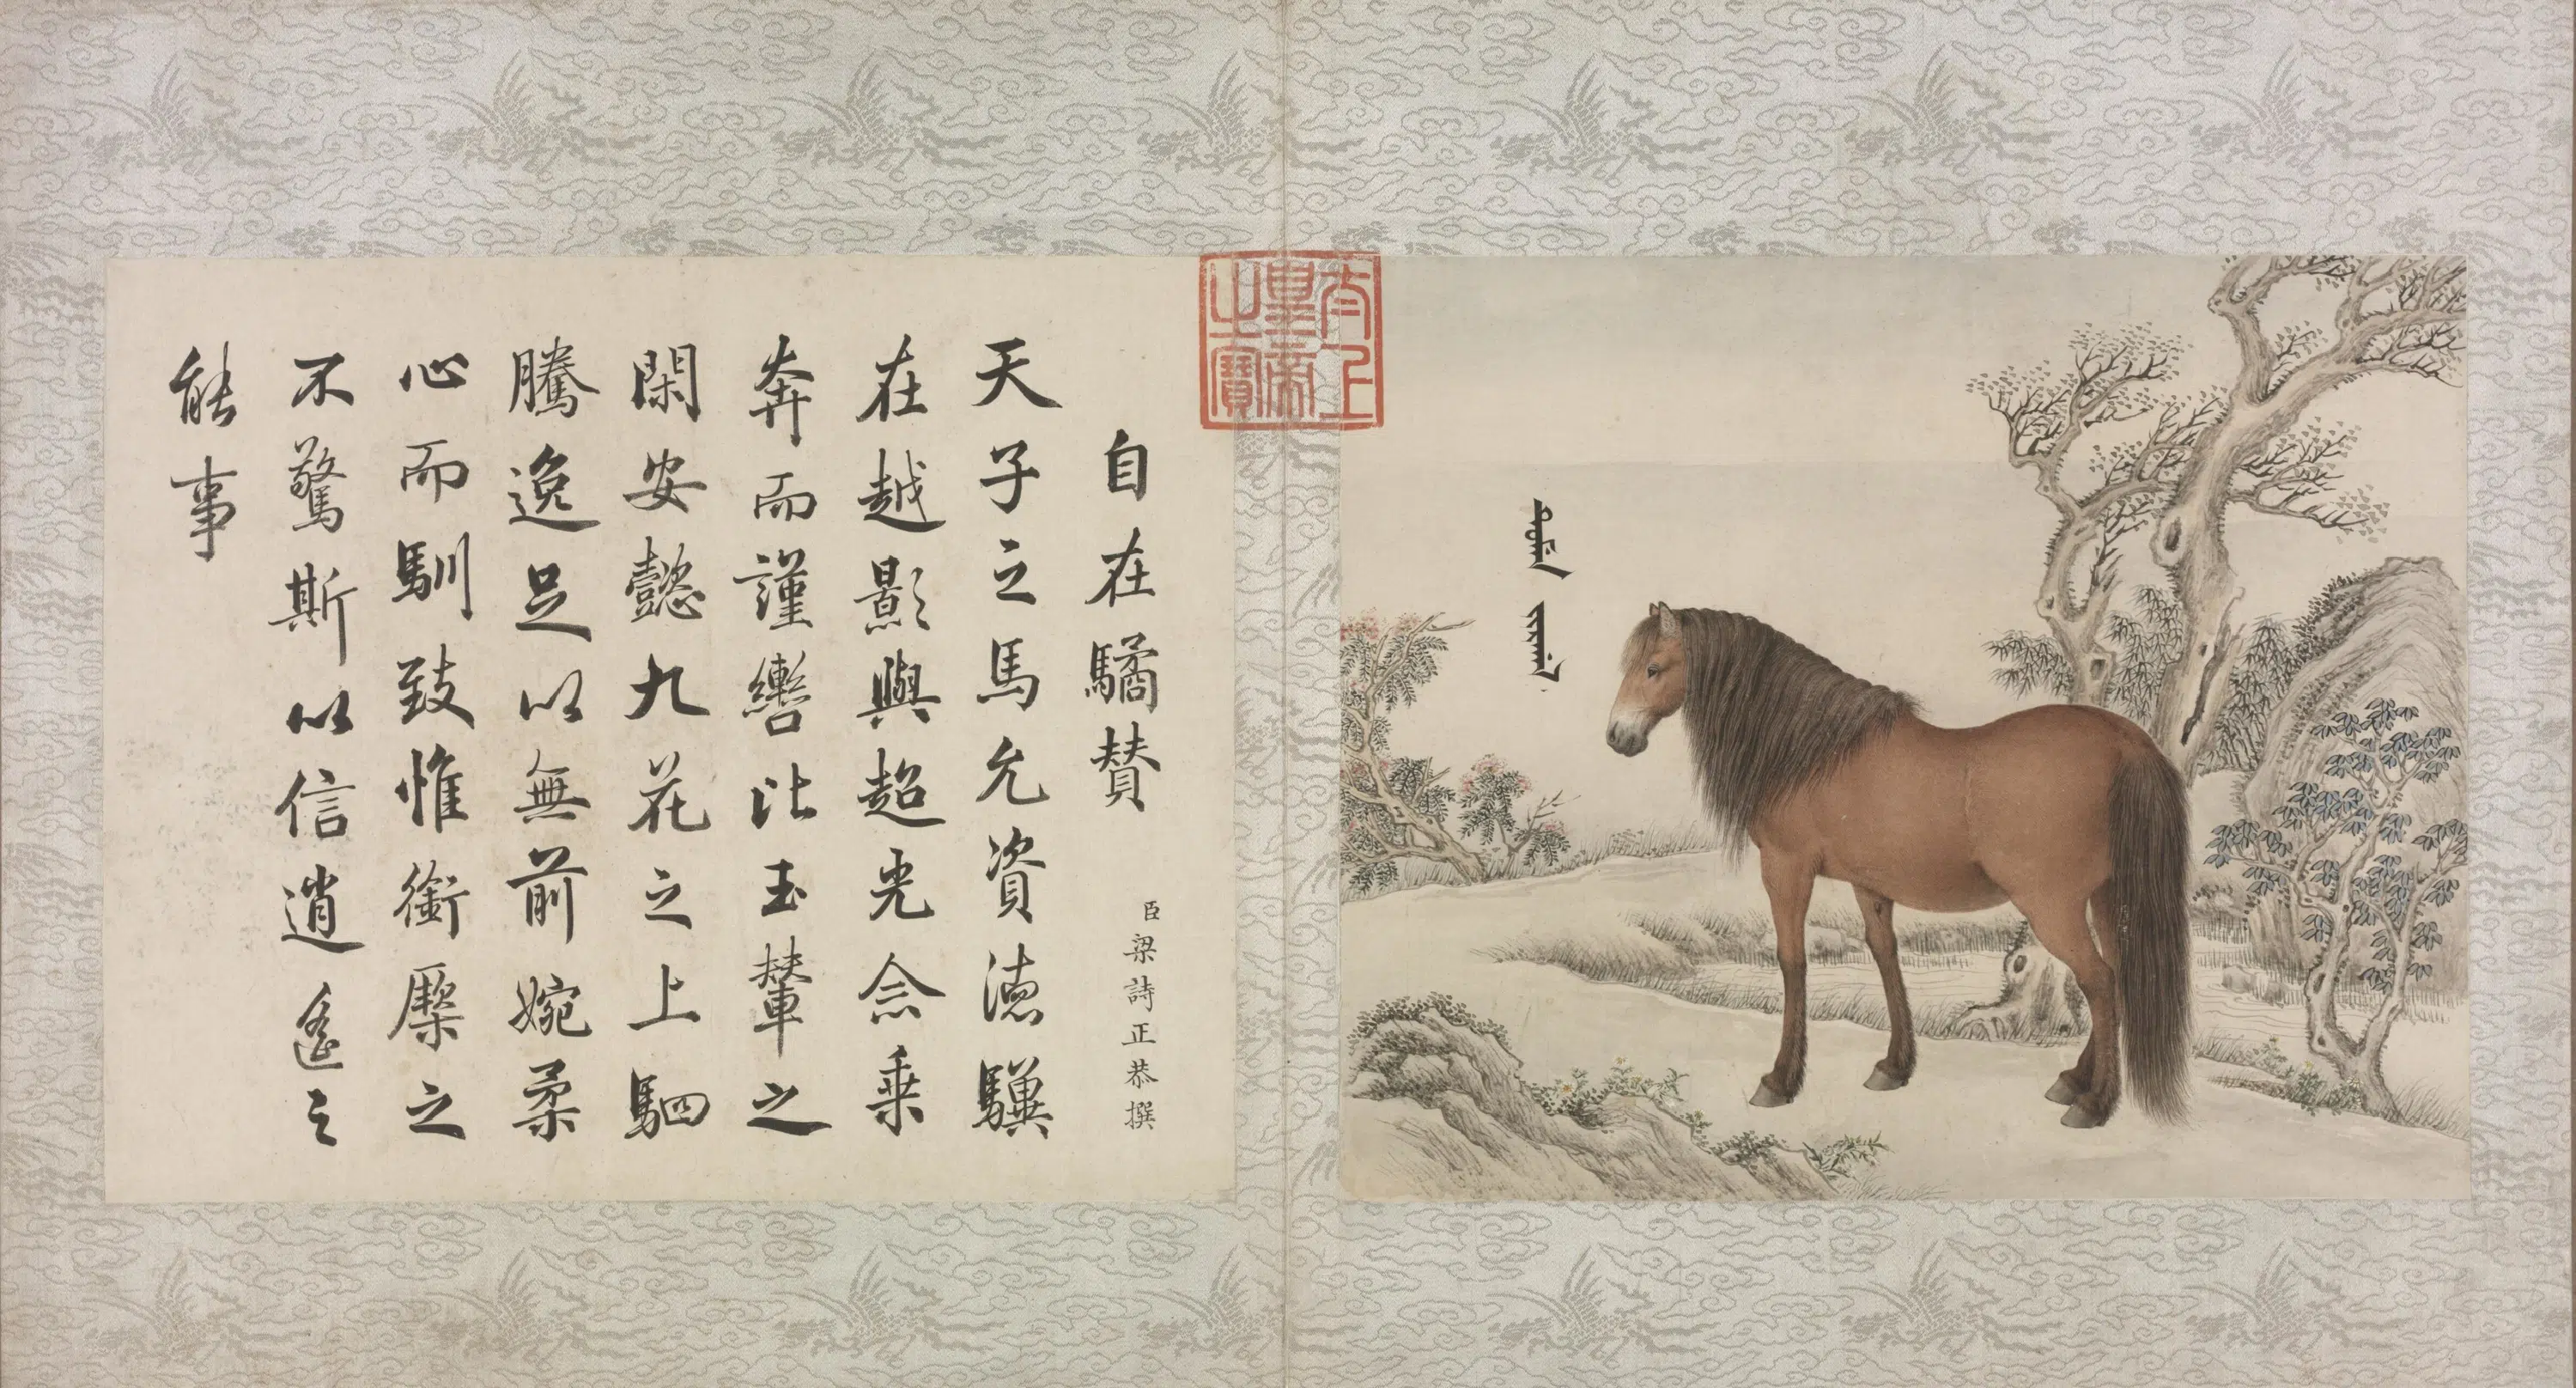 太上皇帝之寶
自在驈賛
臣梁詩正恭撰
天子之馬允資德驥
在越影與超光念乗
奔而謹轡比玉輦之
閑安懿九花之上駟
騰逸足以無前婉柔
心而馴致惟銜橜之
不驚斯以信逍遙之
能事